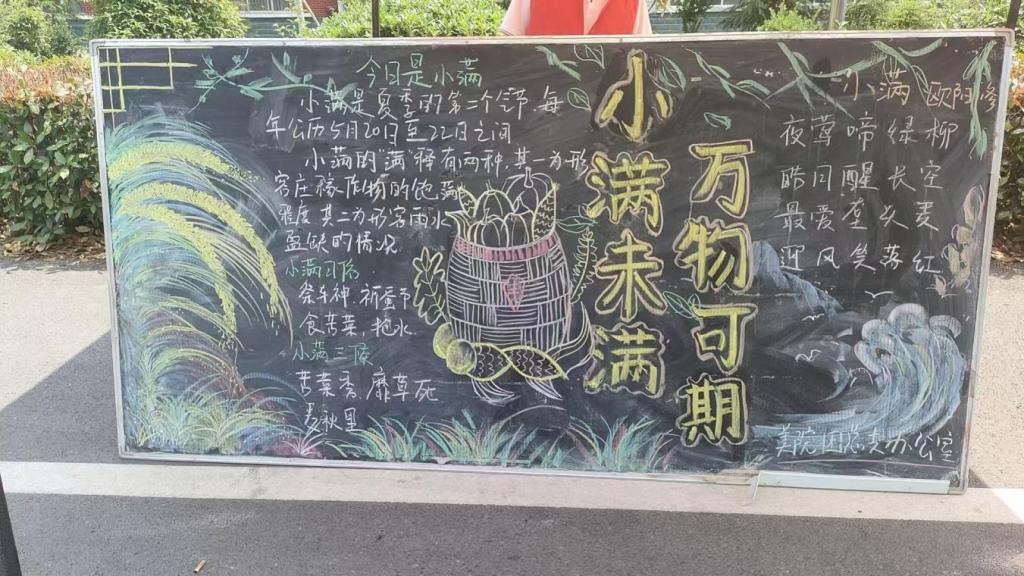 今日是小满
小满是夏季的第二个节 每
年公历5月20日至22日之间
小满的"满"释有两种,其一为形
容庄稼作物的饱满
程度 其二为形容雨水
盈缺的情况
小满习俗
祭车神 祈蚕节
食苦菜 抢水
小满三候
苦菜秀 靡草死
麦秋至
小满未满
万物可期
小满 欧阳修
夜莺啼绿柳
皓月醒长空
最爱垄头麦
迎风笑落红
美院团总支办公室